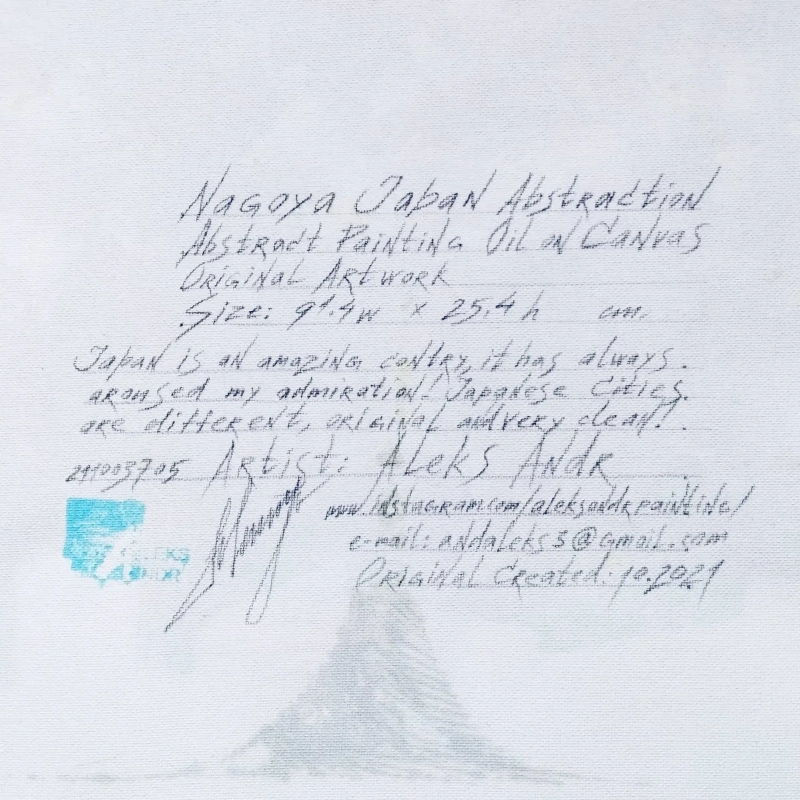 Nagoya Japan Abstraction
Abstract Painting Oil on Canvas
Original Artwork
Size: 91.4w x 25.4h cm.
Japan is an amazing contry, it has always.
aroused my admiration! Japanese Cities.
are different, original and very clean!.
Artist: Aleks Andr
www.instagram.com/aleksandrpainting/
e-mail: andaleks3@gmail.com
ALEKS
ANDR
Original Created: 10.2021